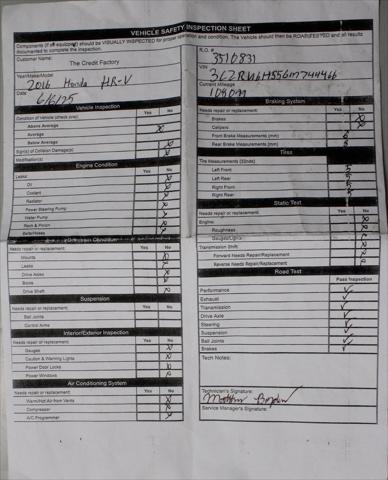 VEHICLE SAFETY INSPECTION SHEET
Components (if so equipped) should be VISUALLY INSPECTED for proper operation and condition. The Vehicle should then be ROAD TESTED and all results
documented to complete the inspection.
Customer Name:
The Credit Factory
Year/Make/Model
2016 Honda HR-V
Date
6/6/25
Vehicle Inspection
Condition of vehicle (check one):
Yes No
Above Average
Average
Below Average
Sign(s) of Collision Damage(s)
Modification(s)
Engine Condition
Leaks
Yes No
Oil
Coolant
Radiator
Power Steering Pump
Water Pump
Rack & Pinion
Belts/Hoses
Condition
Needs repair or replacement:
Yes No
Mounts
Leaks
Drive Axles
Boots
Drive Shaft
Suspension
Needs repair or replacement:
Yes No
Ball Joints
Control Arms
Interior/Exterior Inspection
Yes No
Gauges
Caution & Warning Lights
Power Door Locks
Power Windows
Air Conditioning System
Needs repair or replacement:
Yes No
Warm/Hot Air from Vents
Compressor
A/C Programmer
R.O. #
3510831
VIN
Current Mileage
Braking System
Needs repair or replacement:
Yes No
Brakes
Calipers
Front Brake Measurements (mm)
Rear Brake Measurements (mm)
Tires
Tire Measurements (32nds)
Left Front 5
Left Rear 5
Right Front 5
Right Rear 5
Static Test
Needs repair or replacement
Yes No
Engine:
Roughness
Gauges/Lights
Transmission (Shift)
Forward Needs Repair/Replacement
Reverse Needs Repair/Replacement
Road Test
Pass Inspection
Performance
Exhaust
Transmission
Drive Axle
Steering
Suspension
Ball Joints
Brakes
Tech Notes:
Technician's Signature:
Service Manager's Signature: